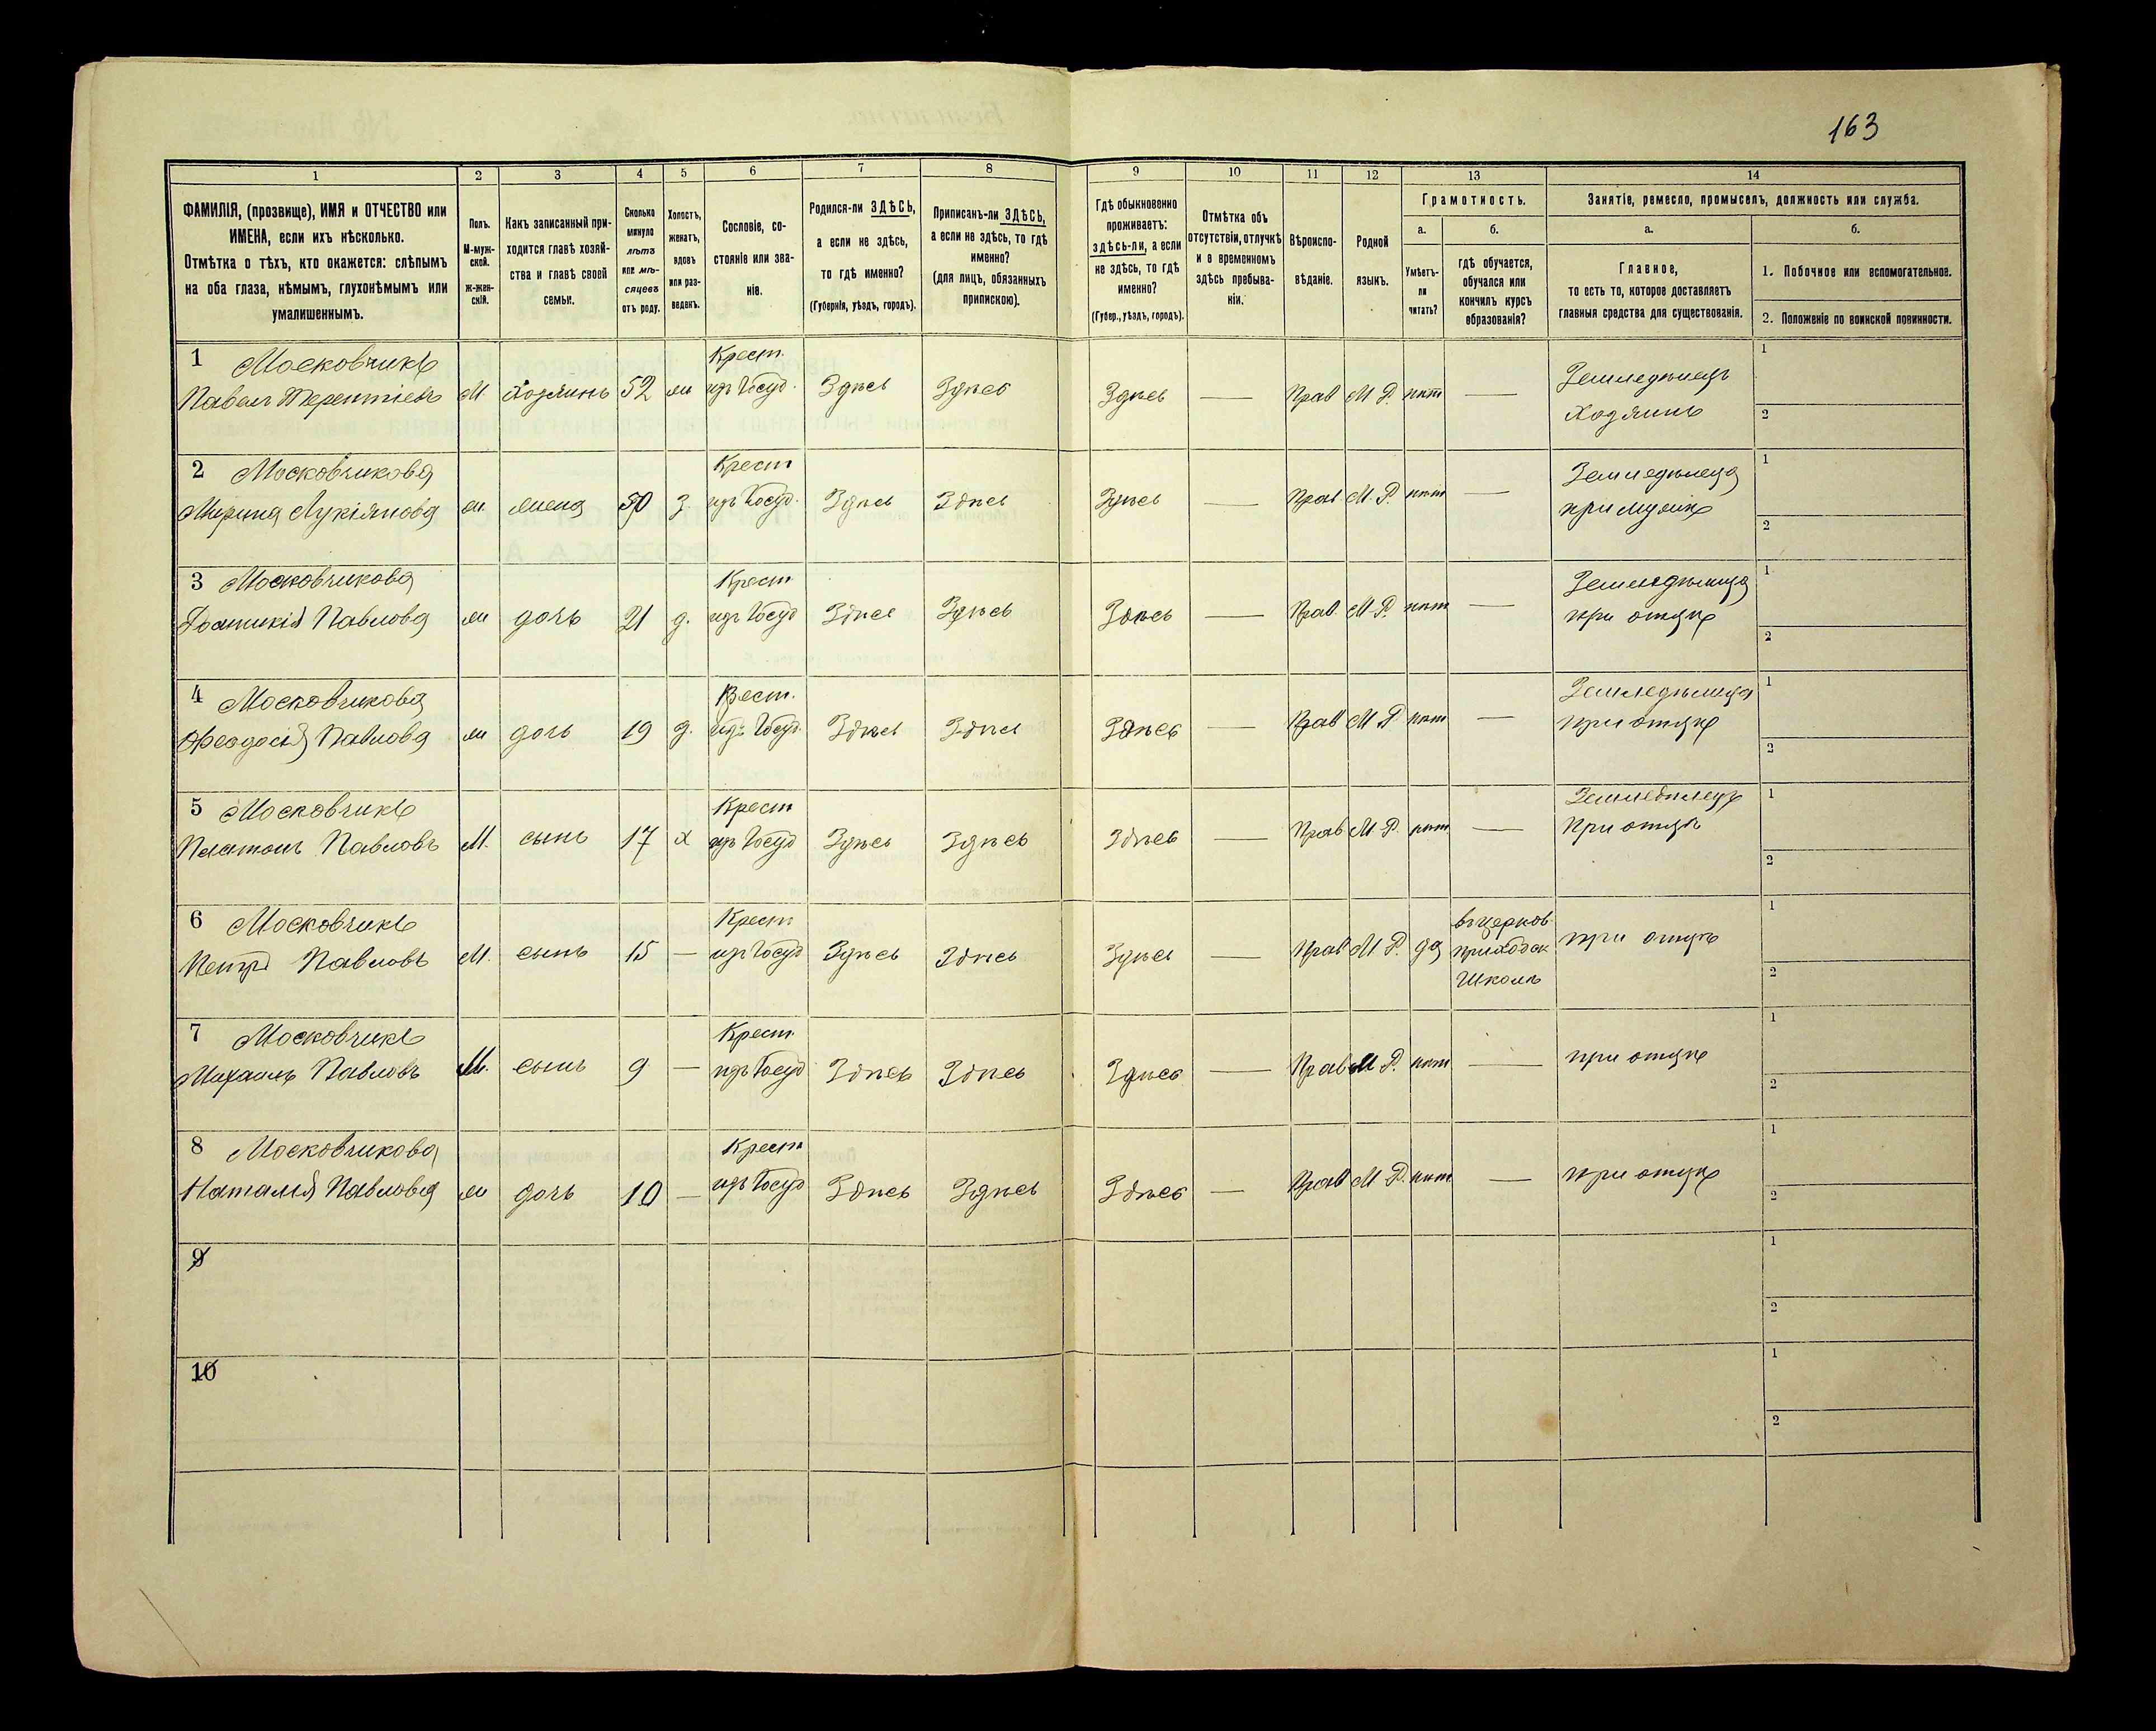 163
1 2 3 4 5 6 7 8 9 10 11 12 13 14
ФАМИЛІЯ, (прозвище), ИМЯ и ОТЧЕСТВО или
ИМЕНА, если ихъ нѣсколько.
Отмѣтка о тѣхъ, кто окажется: слѣпымъ
на оба глаза, нѣмымъ, глухонѣмымъ или
умалишеннымъ.
Полъ.
М-муж-
ской.
Ж-жен-
скій.
Какъ записанный при-
ходится главѣ хозяй-
ства и главѣ своей
семьи.
Сколько
минуло
лѣтъ
или мѣ-
сяцевъ
отъ роду.
Холостъ,
женатъ,
вдовъ
или раз-
веденъ.
Сословіе, со-
стояніе или зва-
ніе.
Родился-ли ЗДѢСЬ,
а если не здѣсь,
то гдѣ именно?
(Губернія, уѣздъ, городъ).
Приписанъ-ли ЗДѢСЬ,
а если не здѣсь, то гдѣ
именно?
(для лицъ, обязанныхъ
припискою).
Гдѣ обыкновенно
проживаетъ:
здѣсь-ли, а если
не здѣсь, то гдѣ
именно?
(Губер., уѣздъ, городъ).
Отмѣтка объ
отсутствіи, отлучкѣ
и о временномъ
здѣсь пребыва-
ніи.
Вѣроиспо-
вѣданіе.
Родной
языкъ.
Грамотность.
а.
Умѣетъ-
ли
читать?
б.
гдѣ обучается,
обучался или
кончилъ курсъ
образованія?
Занятіе, ремесло, промыселъ, должность или служба.
а.
Главное,
то есть то, которое доставляетъ
главныя средства для существованія.
б.
1. Побочное или вспомогательное.
2. Положеніе по воинской повинности.
1 Московчикъ Крест. Земледѣлецъ 1
Павелъ Терентіевъ М. Хозяинъ 52 ж изъ Госуд. Здѣсь Здѣсь Здѣсь — Прав М. Р. нѣт — Хозяинъ 2
2 Московчикова Крест Земледѣлица 1
Мирина Лукіянова ж. жена 50 З. изъ Госуд. Здѣсь Здѣсь Здѣсь — Прав М. Р. нѣт — при мужѣ 2
3 Московчикова Крест Земледѣлица 1
Павлова ж дочь 21 д. изъ Госуд Здѣсь Здѣсь Здѣсь — Прав М. Р. нѣт — при отцѣ 2
4 Московчикова Крест. Земледѣлица 1
Феодосія Павлова ж дочь 19 д. изъ Госуд. Здѣсь Здѣсь Здѣсь — Прав М. Р. нѣт — при отцѣ 2
5 Московчикъ Крест Земледѣлецъ 1
Платонъ Павловъ М. сынъ 17 х изъ Госуд Здѣсь Здѣсь Здѣсь — Прав М. Р. нѣт — при отцѣ 2
6 Московчикъ Крест въ церков 1
Петръ Павловъ М. сынъ 15 — изъ Госуд Здѣсь Здѣсь Здѣсь — Прав М. Р. да приходск при отцѣ
Школѣ 2
7 Московчикъ Крест 1
Михаилъ Павловъ М. сынъ 9 — изъ Госуд Здѣсь Здѣсь Здѣсь — Прав М. Р. нѣт — при отцѣ 2
8 Московчикова Крест 1
Наталія Павлова ж дочь 10 — изъ Госуд Здѣсь Здѣсь Здѣсь — Прав М. Р. нѣт — при отцѣ 2
9 1
2
10 1
2